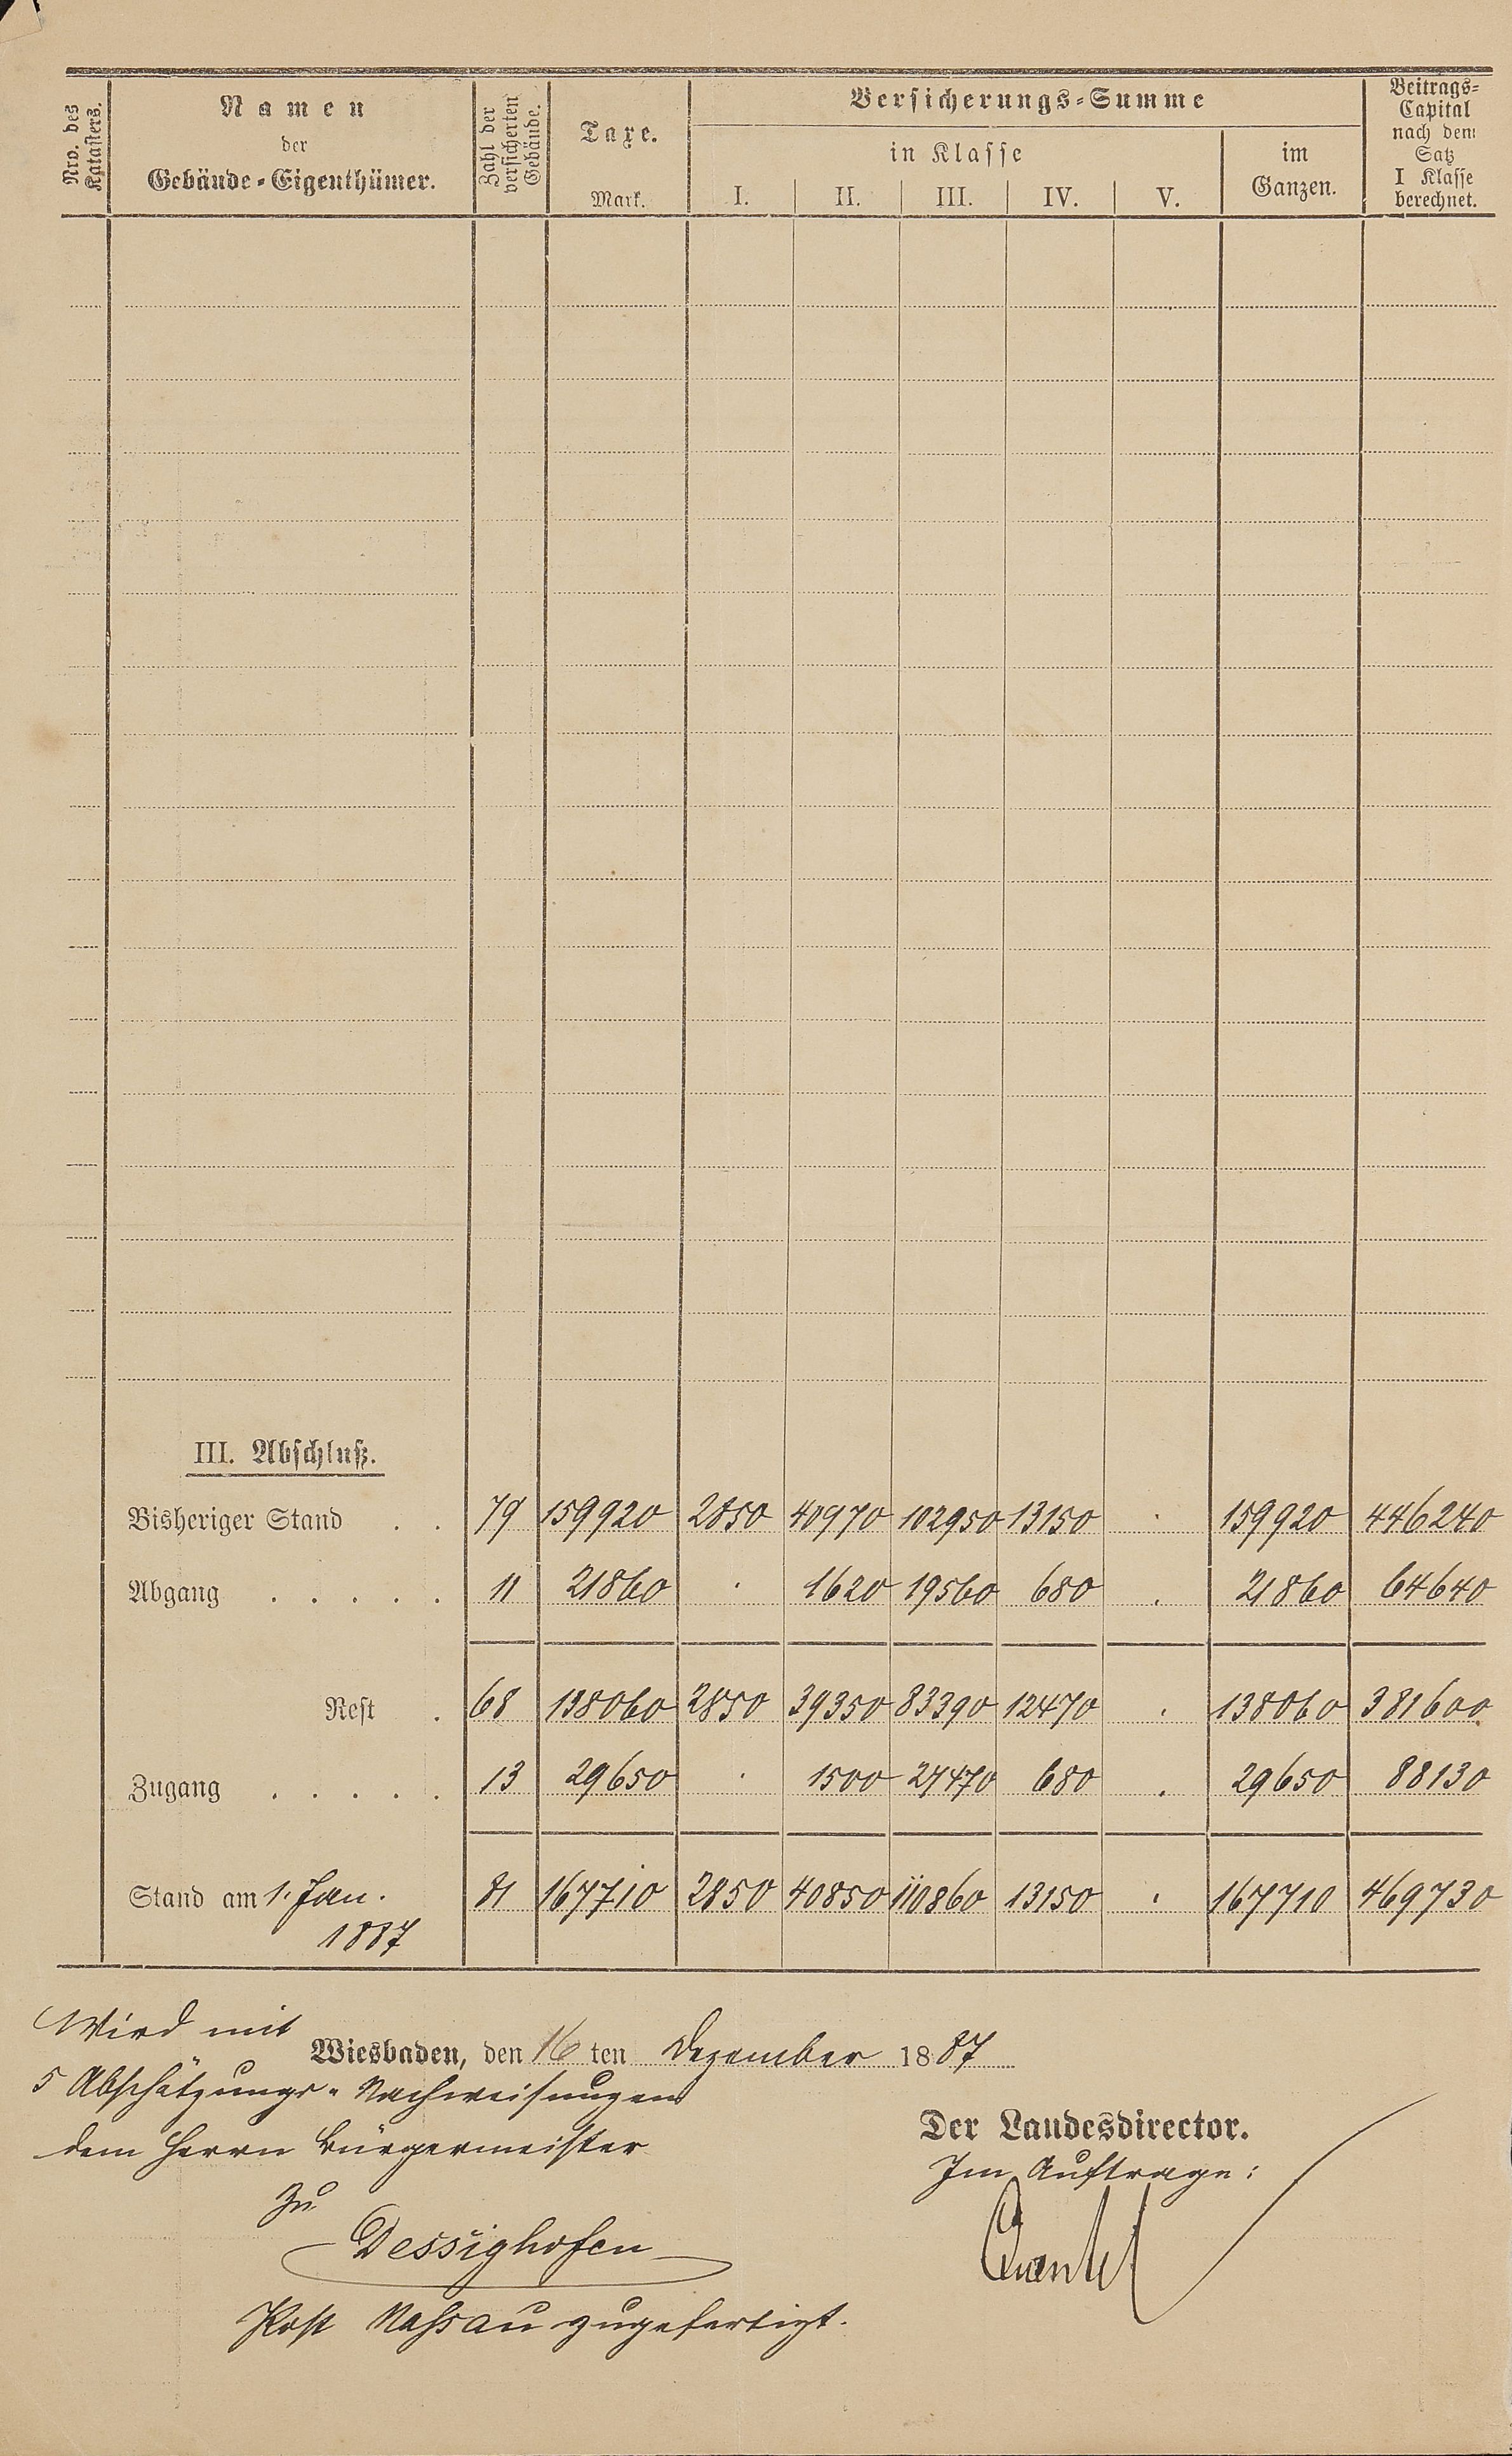 Nro. des Katasters.
Namen
der
Gebäude-Eigenthümer.
Zahl der versicherten Gebäude.
Taxe.
Mark.
Versicherungs-Summe
in Klasse
I. II. III. IV. V.
im
Ganzen.
Beitrags-
Capital
nach dem
Satz
I Klasse
berechnet.
III. Abschluß.
Bisheriger Stand . . 79 159920 2850 40970 102950 13150 . 159920 446240
Abgang . . . . . 11 21860 . 1620 19560 680 . 21860 64640
Rest . 68 138060 2850 39350 83390 12470 . 138060 381600
Zugang . . . . . 13 29650 . 1500 27470 680 . 29650 88130
Stand am 1. Jan. 81 167710 2850 40850 110860 13150 . 167710 469730
1887
Wird mit
Wiesbaden, den 16 ten Dezember 1887
5 Abschätzungs-Nachweisungen
dem Herrn Bürgermeister
zu
Dessighofen
Post Nassau zugefertigt.
Der Landesdirector.
Im Auftrage: